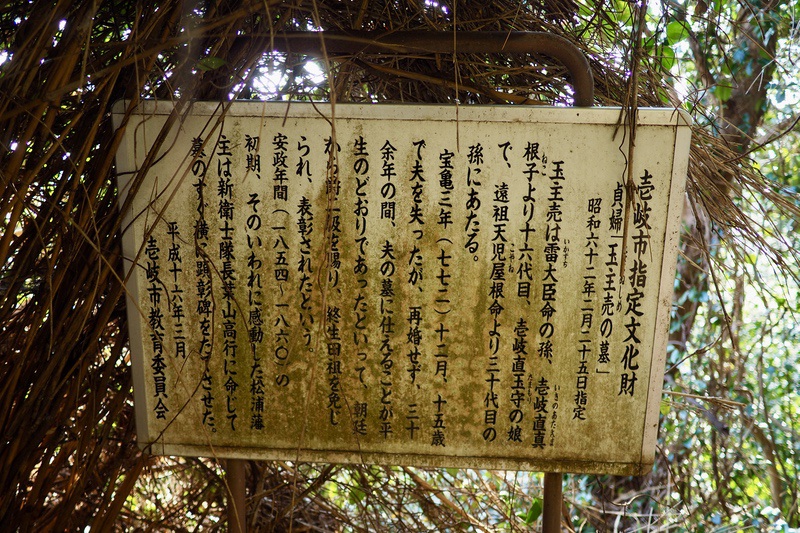 壱岐市指定文化財
貞婦「玉主売の墓」
昭和六十二年二月二十五日指定
玉主売は雷大臣命の孫、壱岐直真
根子より十六代目、壱岐直玉守の娘
で、遠祖天児屋根命より三十代目の
孫にあたる。
宝亀三年（七七二）十二月、十五歳
で夫を失ったが、再婚せず、三十
余年の間、夫の墓に仕えることが平
生のどおりであったといって、朝廷
から爵二級を賜り、終生田租を免じ
られ、表彰されたという。
安政年間（一八五四～一八六〇）の
初期、そのいわれに感動した松浦藩
主は新衛士隊長葉山高行に命じて
墓のすぐ横に顕彰碑をたてさせた。
平成十六年三月
壱岐市教育委員会